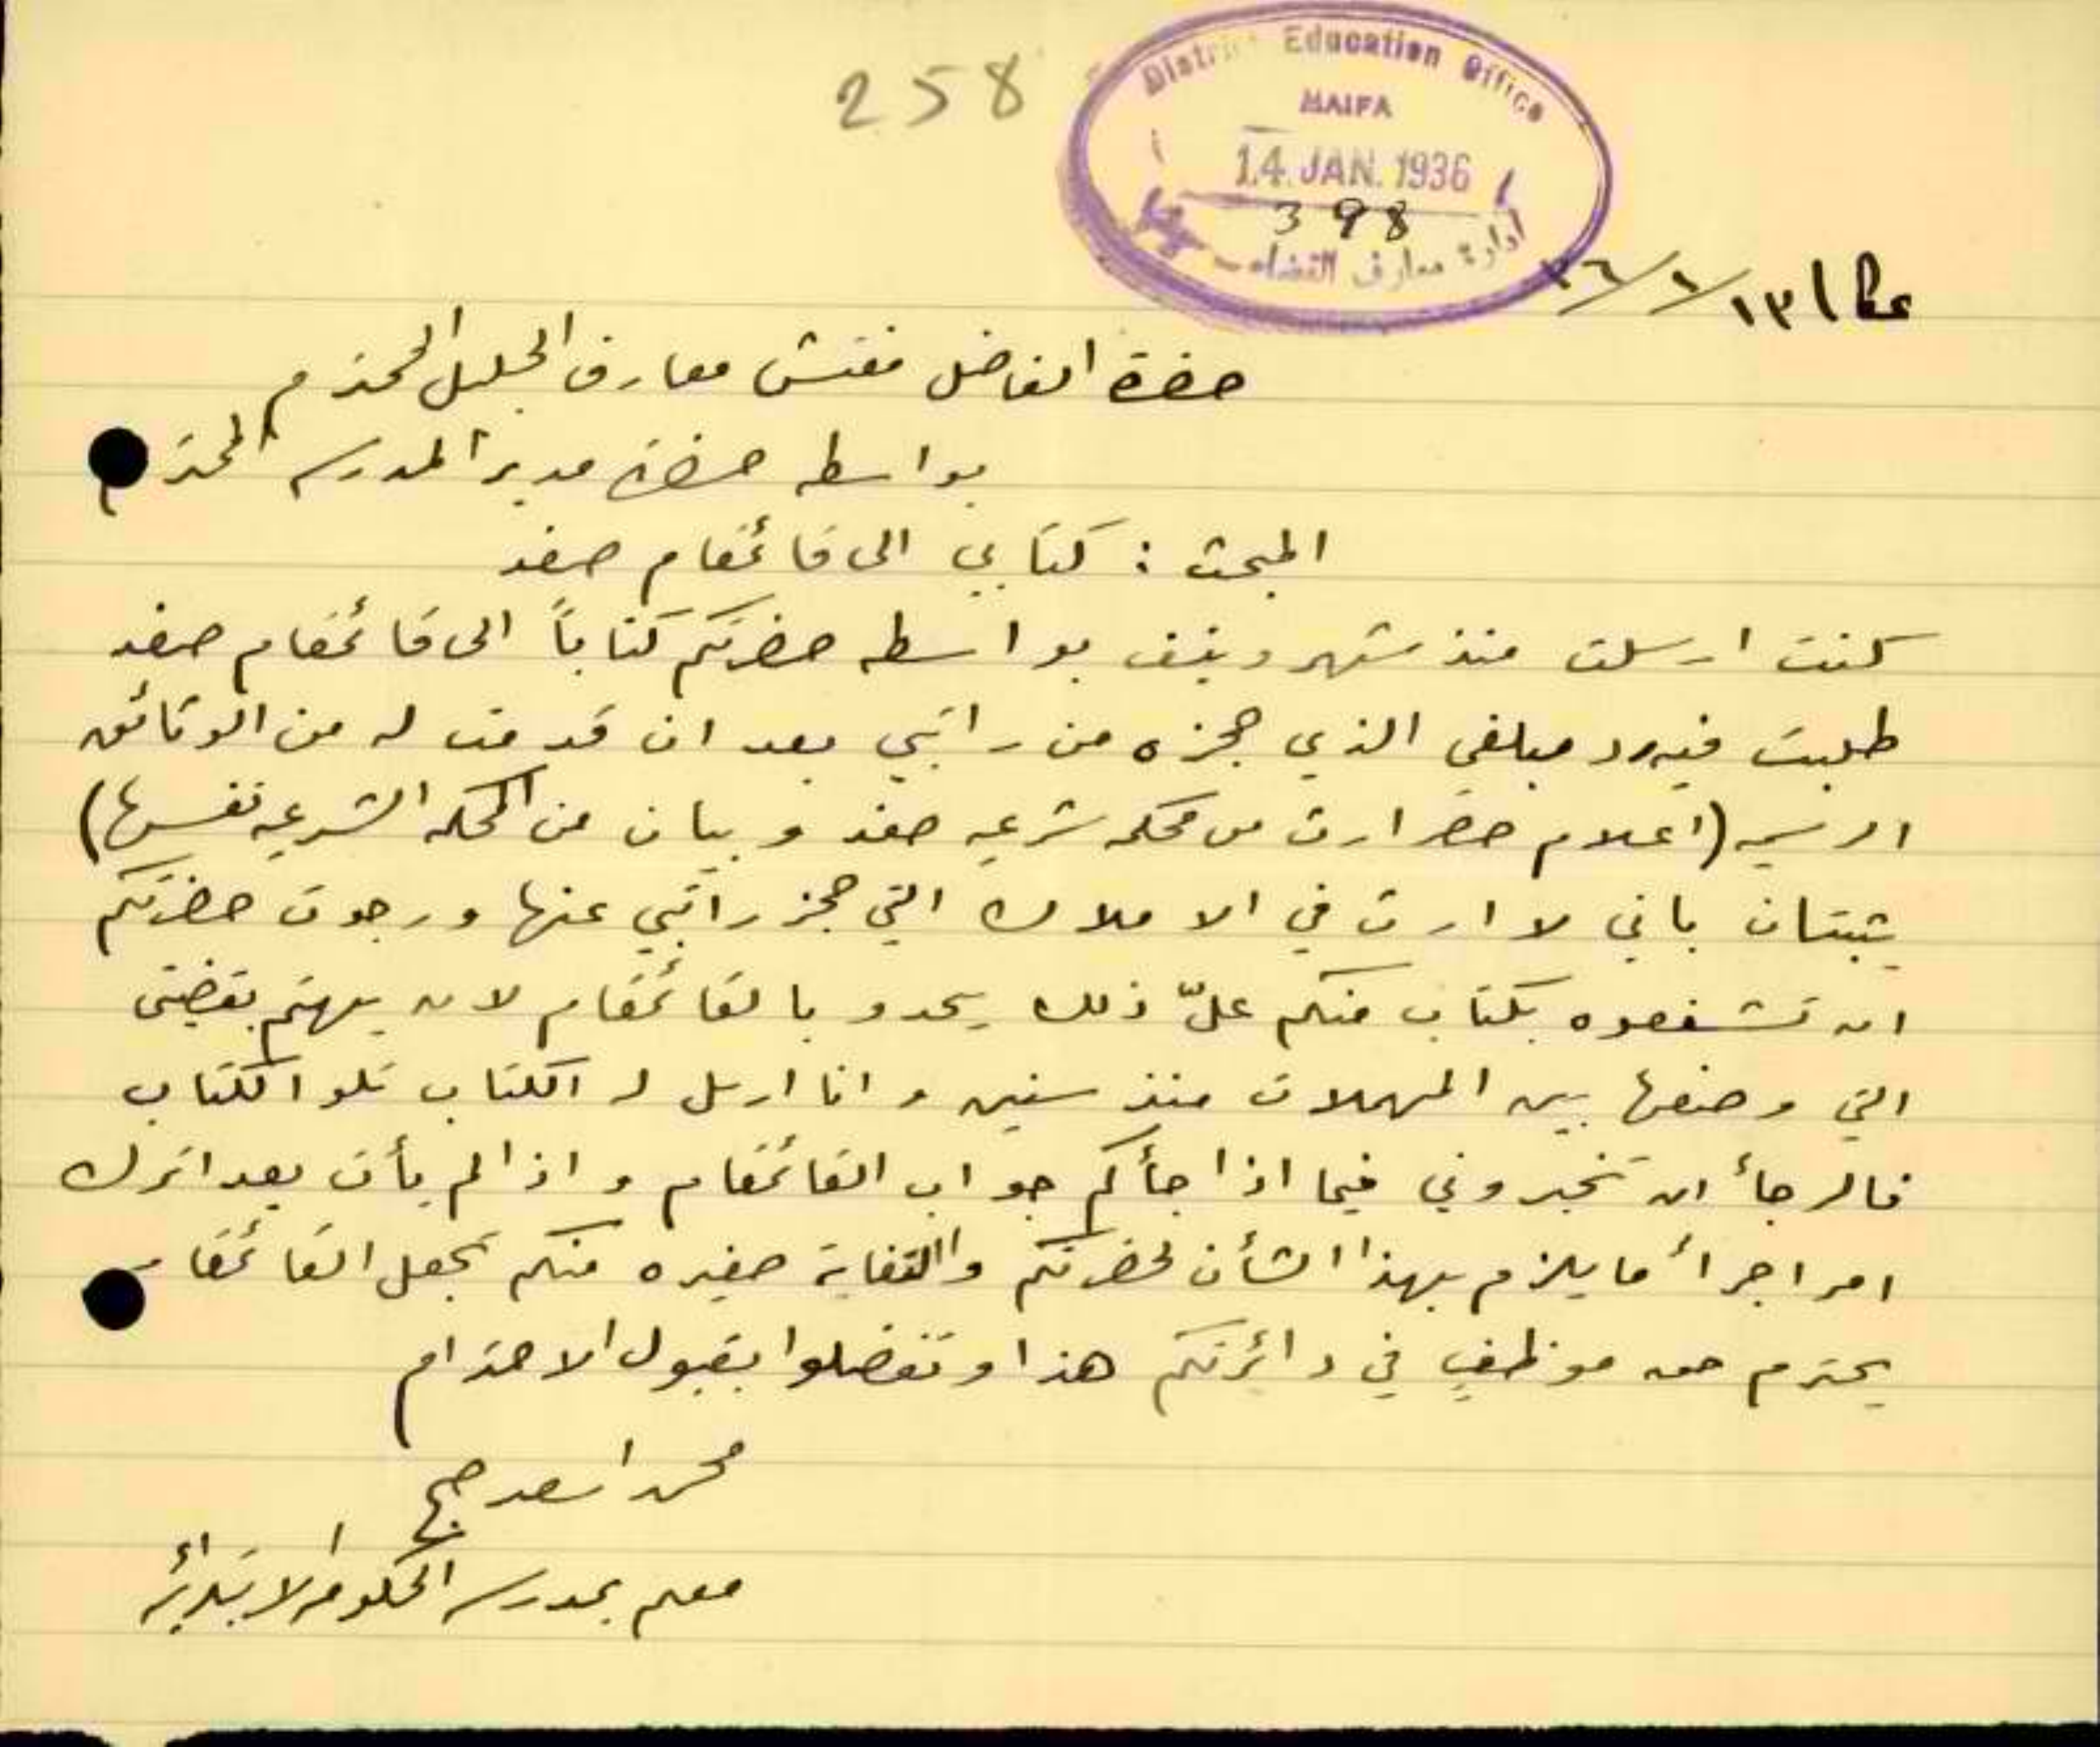 258
District Education Office
HAIFA
14. JAN. 1936
398
ادارة معارف القضاء
عكا ١٣/١/٣٦
حضرة الفاضل مفتش معارف الجليل المحترم
بواسطه حضرة مدير المدرسه المحترم
المبحث : كتابي الى قائمقام صفد
كنت ارسلت منذ شهر ونيف بواسطه حضرتكم كتاباً الى قائمقام صفد
طلبت فيه رد مبلغي الذي حجزه من راتبي بعد ان قدمت له من الوثائق
الرسميه (اعلام حصر ارث من محكمه شرعيه صفد وبيان من المحكمه الشرعيه نفسها)
يثبتان باني لا ارث في الاملاك التي حجز راتبي عنها ورجوت حضرتكم
ان تشفعوه بكتاب منكم علّ ذلك يحدو بالقائمقام لان يهتم بقضيتي
التي وضعها بين المهملات منذ سنين وانا ارسل له الكتاب تلو الكتاب
فالرجأ ان تخبروني فيما اذا جأكم جواب القائمقام واذا لم يأت بعد اترك
امر اجرأ ما يلزم بهذا الشأن لحضرتكم والتفاتة صغيره منكم تجعل القائمقام
يحترم حق موظفٍ في دائرتكم هذا وتفضلوا بقبول الاحترام
محمد اسعد
معلم بمدرسه الحكومه الابتدائيه